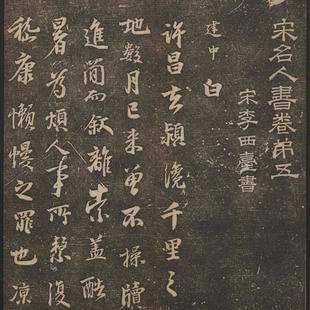 宋名人書卷弟五
宋李西臺書
建中白
許昌去潁澆千里之
地數月已来曾不操牘
進簡而叙離索蓋酷
暑為煩人事所繫復
嵇康懶慢之罪也凉